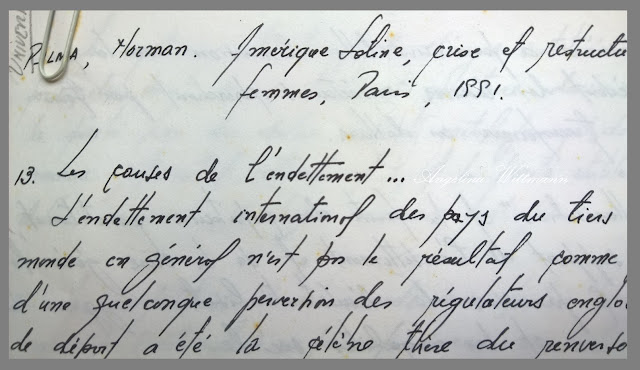 Norman. Amérique Latine, crise et restructu
femmes, Paris, 1991.
13. Les causes de l'endettement...
Angelina Wittmann
L'endettement international des pays du tiers
monde en général n'est pas le résultat comme
d'une quelconque perversion des régulateurs anglo
de départ a été la célèbre thèse du renverse